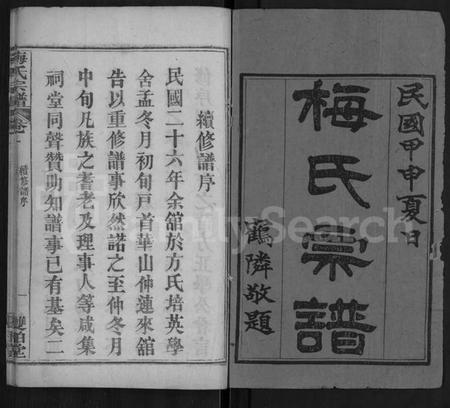 民國甲申夏日
梅氏宗譜
鶴隣敬題
續修譜序
民國二十六年余舘於方氏培英學
舍孟冬月初旬戸首華山仲蓮來舘
告以重修譜事欣然諾之至仲冬月
中旬凡族之耆老及理事人等咸集
祠堂同聲贊助知譜事已有基矣二
梅氏宗譜
續修譜序
一
FamilySearch